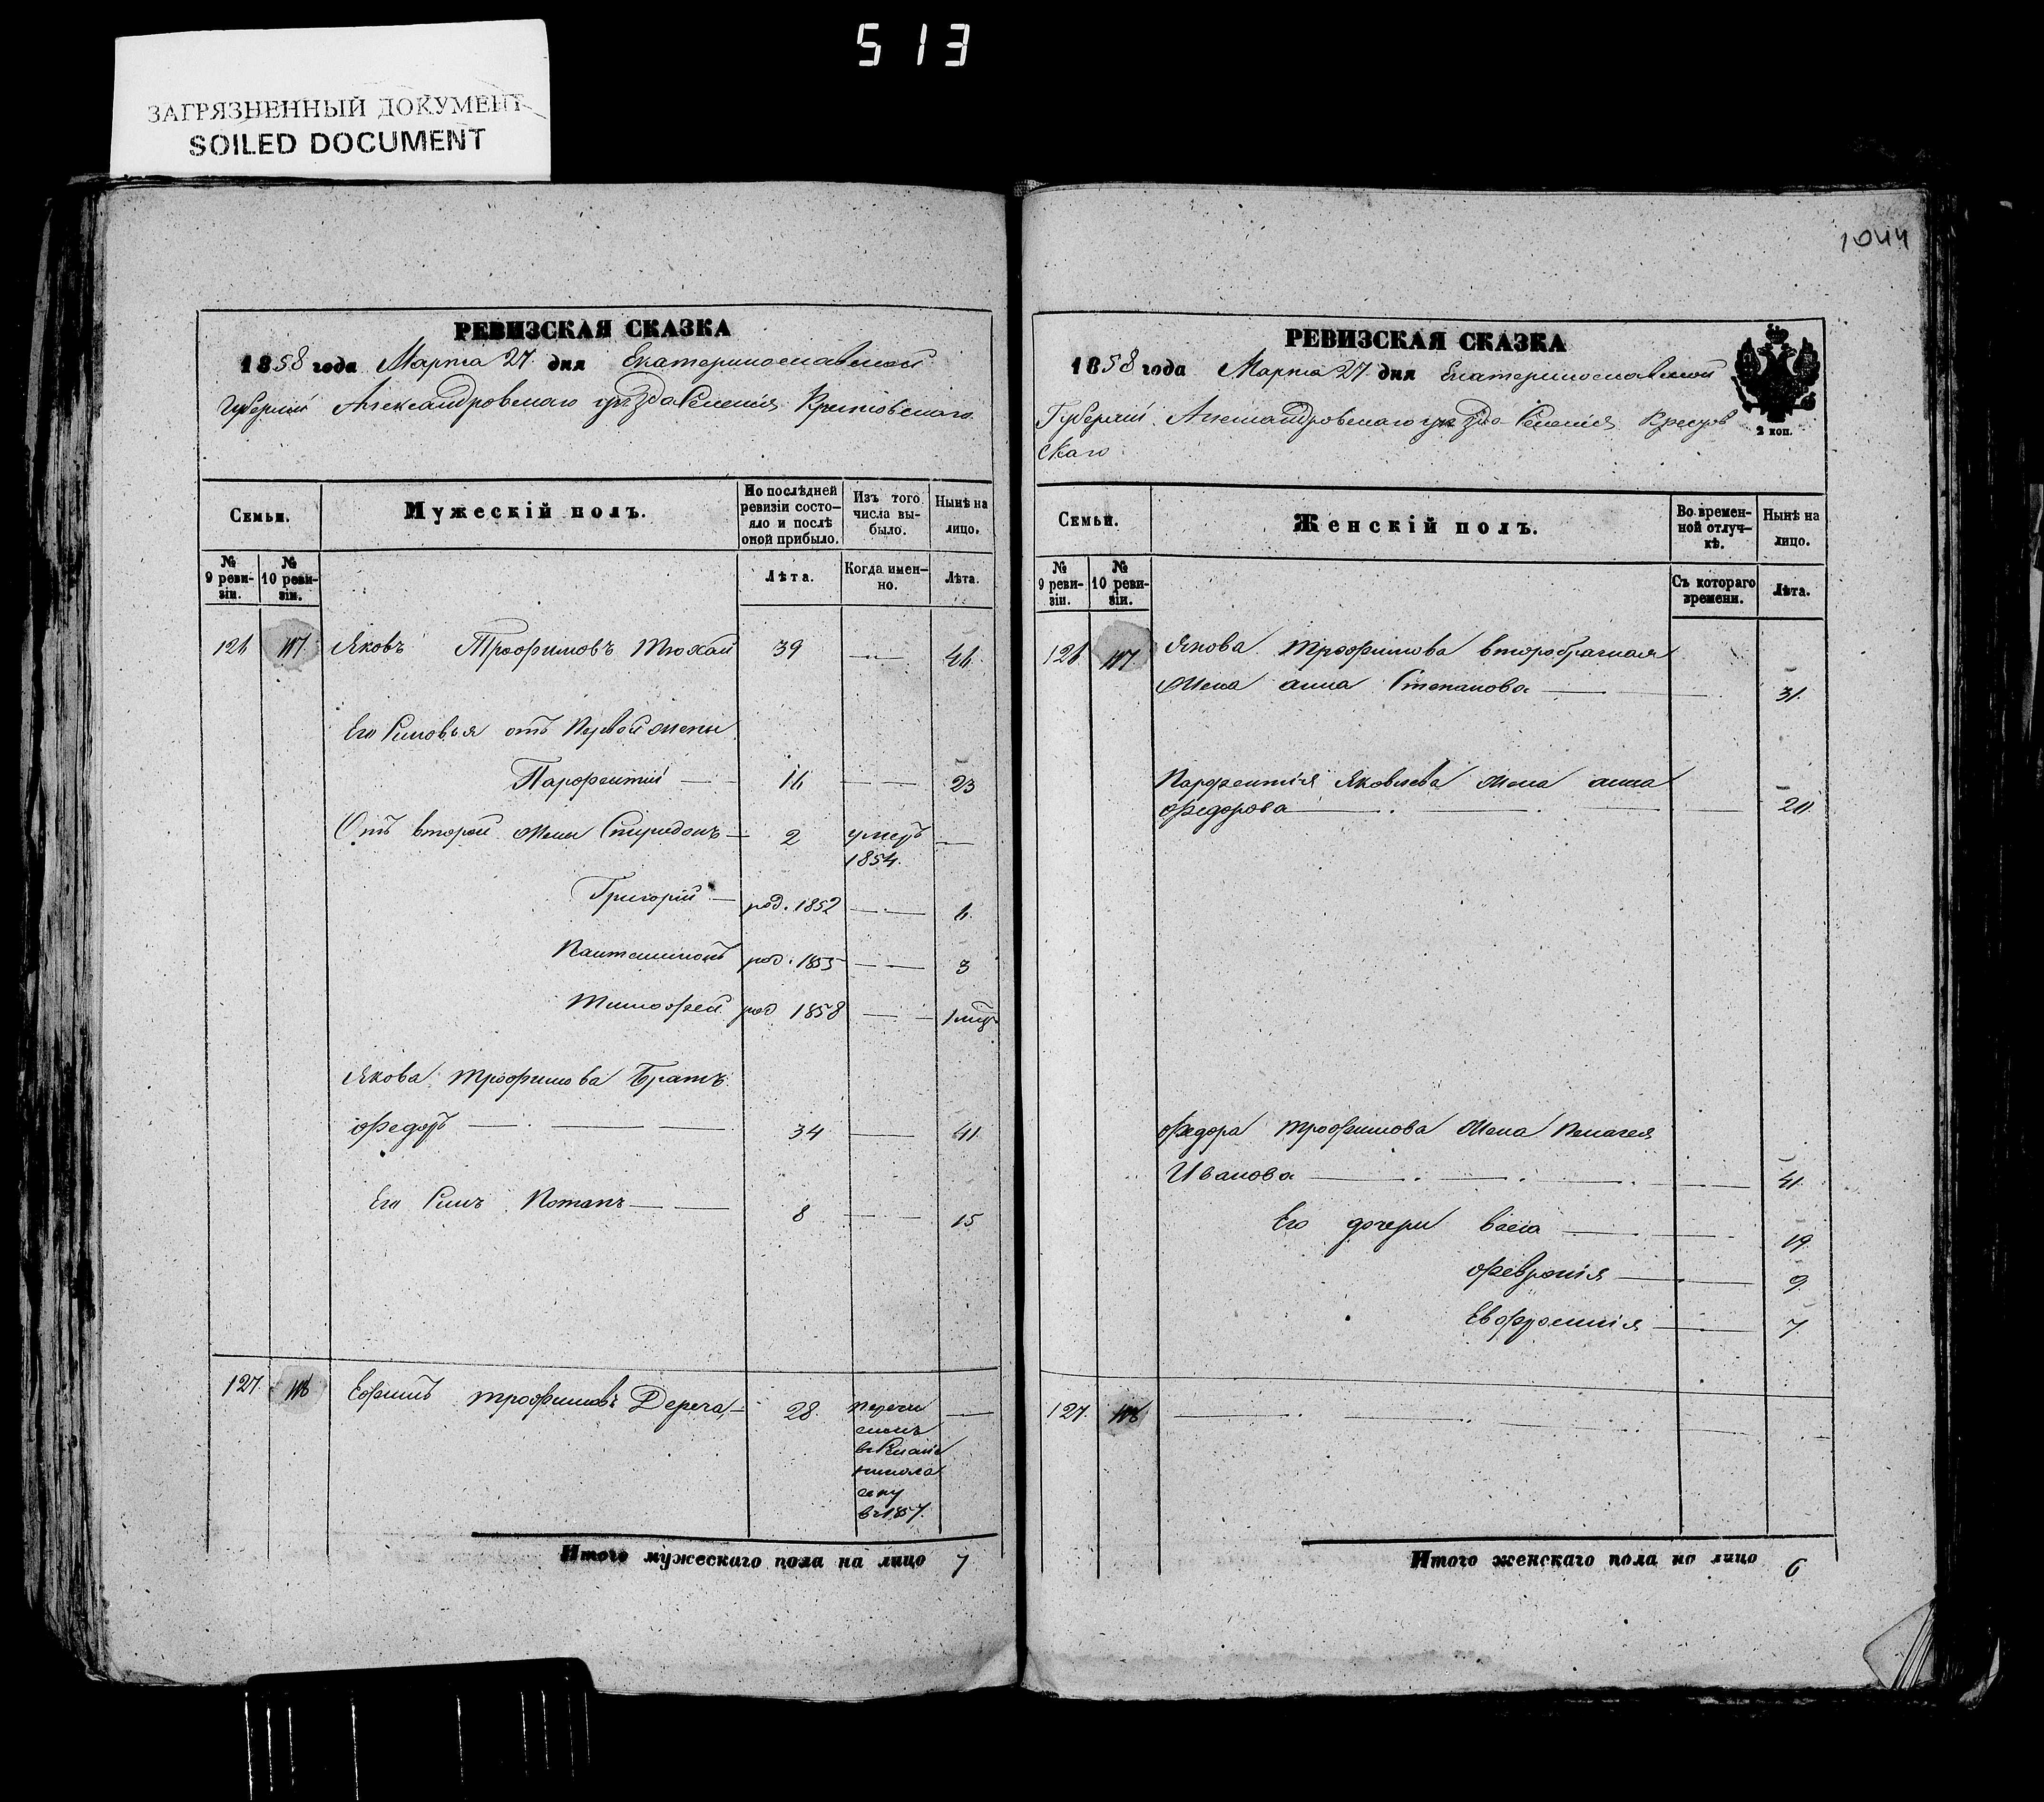 513
ЗАГРЯЗНЕННЫЙ ДОКУМЕНТ
SOILED DOCUMENT
РЕВИЗСКАЯ СКАЗКА
1858 года Марта 27 дня Екатеринославской
Губерніи Александровскаго уѣзда Селенія
Семьи.
Мужескій полъ.
По послѣдней ревизіи состояло и послѣ оной прибыло.
Изъ того числа выбыло.
Нынѣ на лицо.
№ 9 ревизіи.
№ 10 ревизіи.
Лѣта.
Когда именно.
Лѣта.
126 117 Яковъ Трофимовъ Тюхай 39 46
Его Сыновья отъ Первой жены
Парфентій 16 23
Отъ второй жены Спиридонъ 2 умеръ
1854.
Григорій род. 1852 6
род. 1855 3
Тимофей род 1858 1 мѣц
Якова Трофимова Братъ
Федоръ 34 41
Его Сынъ Потапъ 8 15
127. 118 Ефимъ Трофимовъ 28. перечи
сленъ
въ
в 1857.
Итого мужескаго пола на лицо 7
1044
РЕВИЗСКАЯ СКАЗКА
1858 года Марта 27 дня Екатеринославской
2 коп.
Губерніи Александровскаго уѣзда Селенія
скаго
Семьи.
Женскій полъ.
Во временной отлучкѣ.
Нынѣ на лицо.
№ 9 ревизіи.
№ 10 ревизіи.
Съ котораго времени.
Лѣта.
126 117 Якова Трофимова второбрачная
жена анна Степанова 31.
Парфентія Яковлева жена анна
Федорова
Федора Трофимова жена Пелагея
Иванова 41
Его дочери Васса 19
Февронія 9
Евфросинія 7
127. 118
Итого женскаго пола на лицо 6